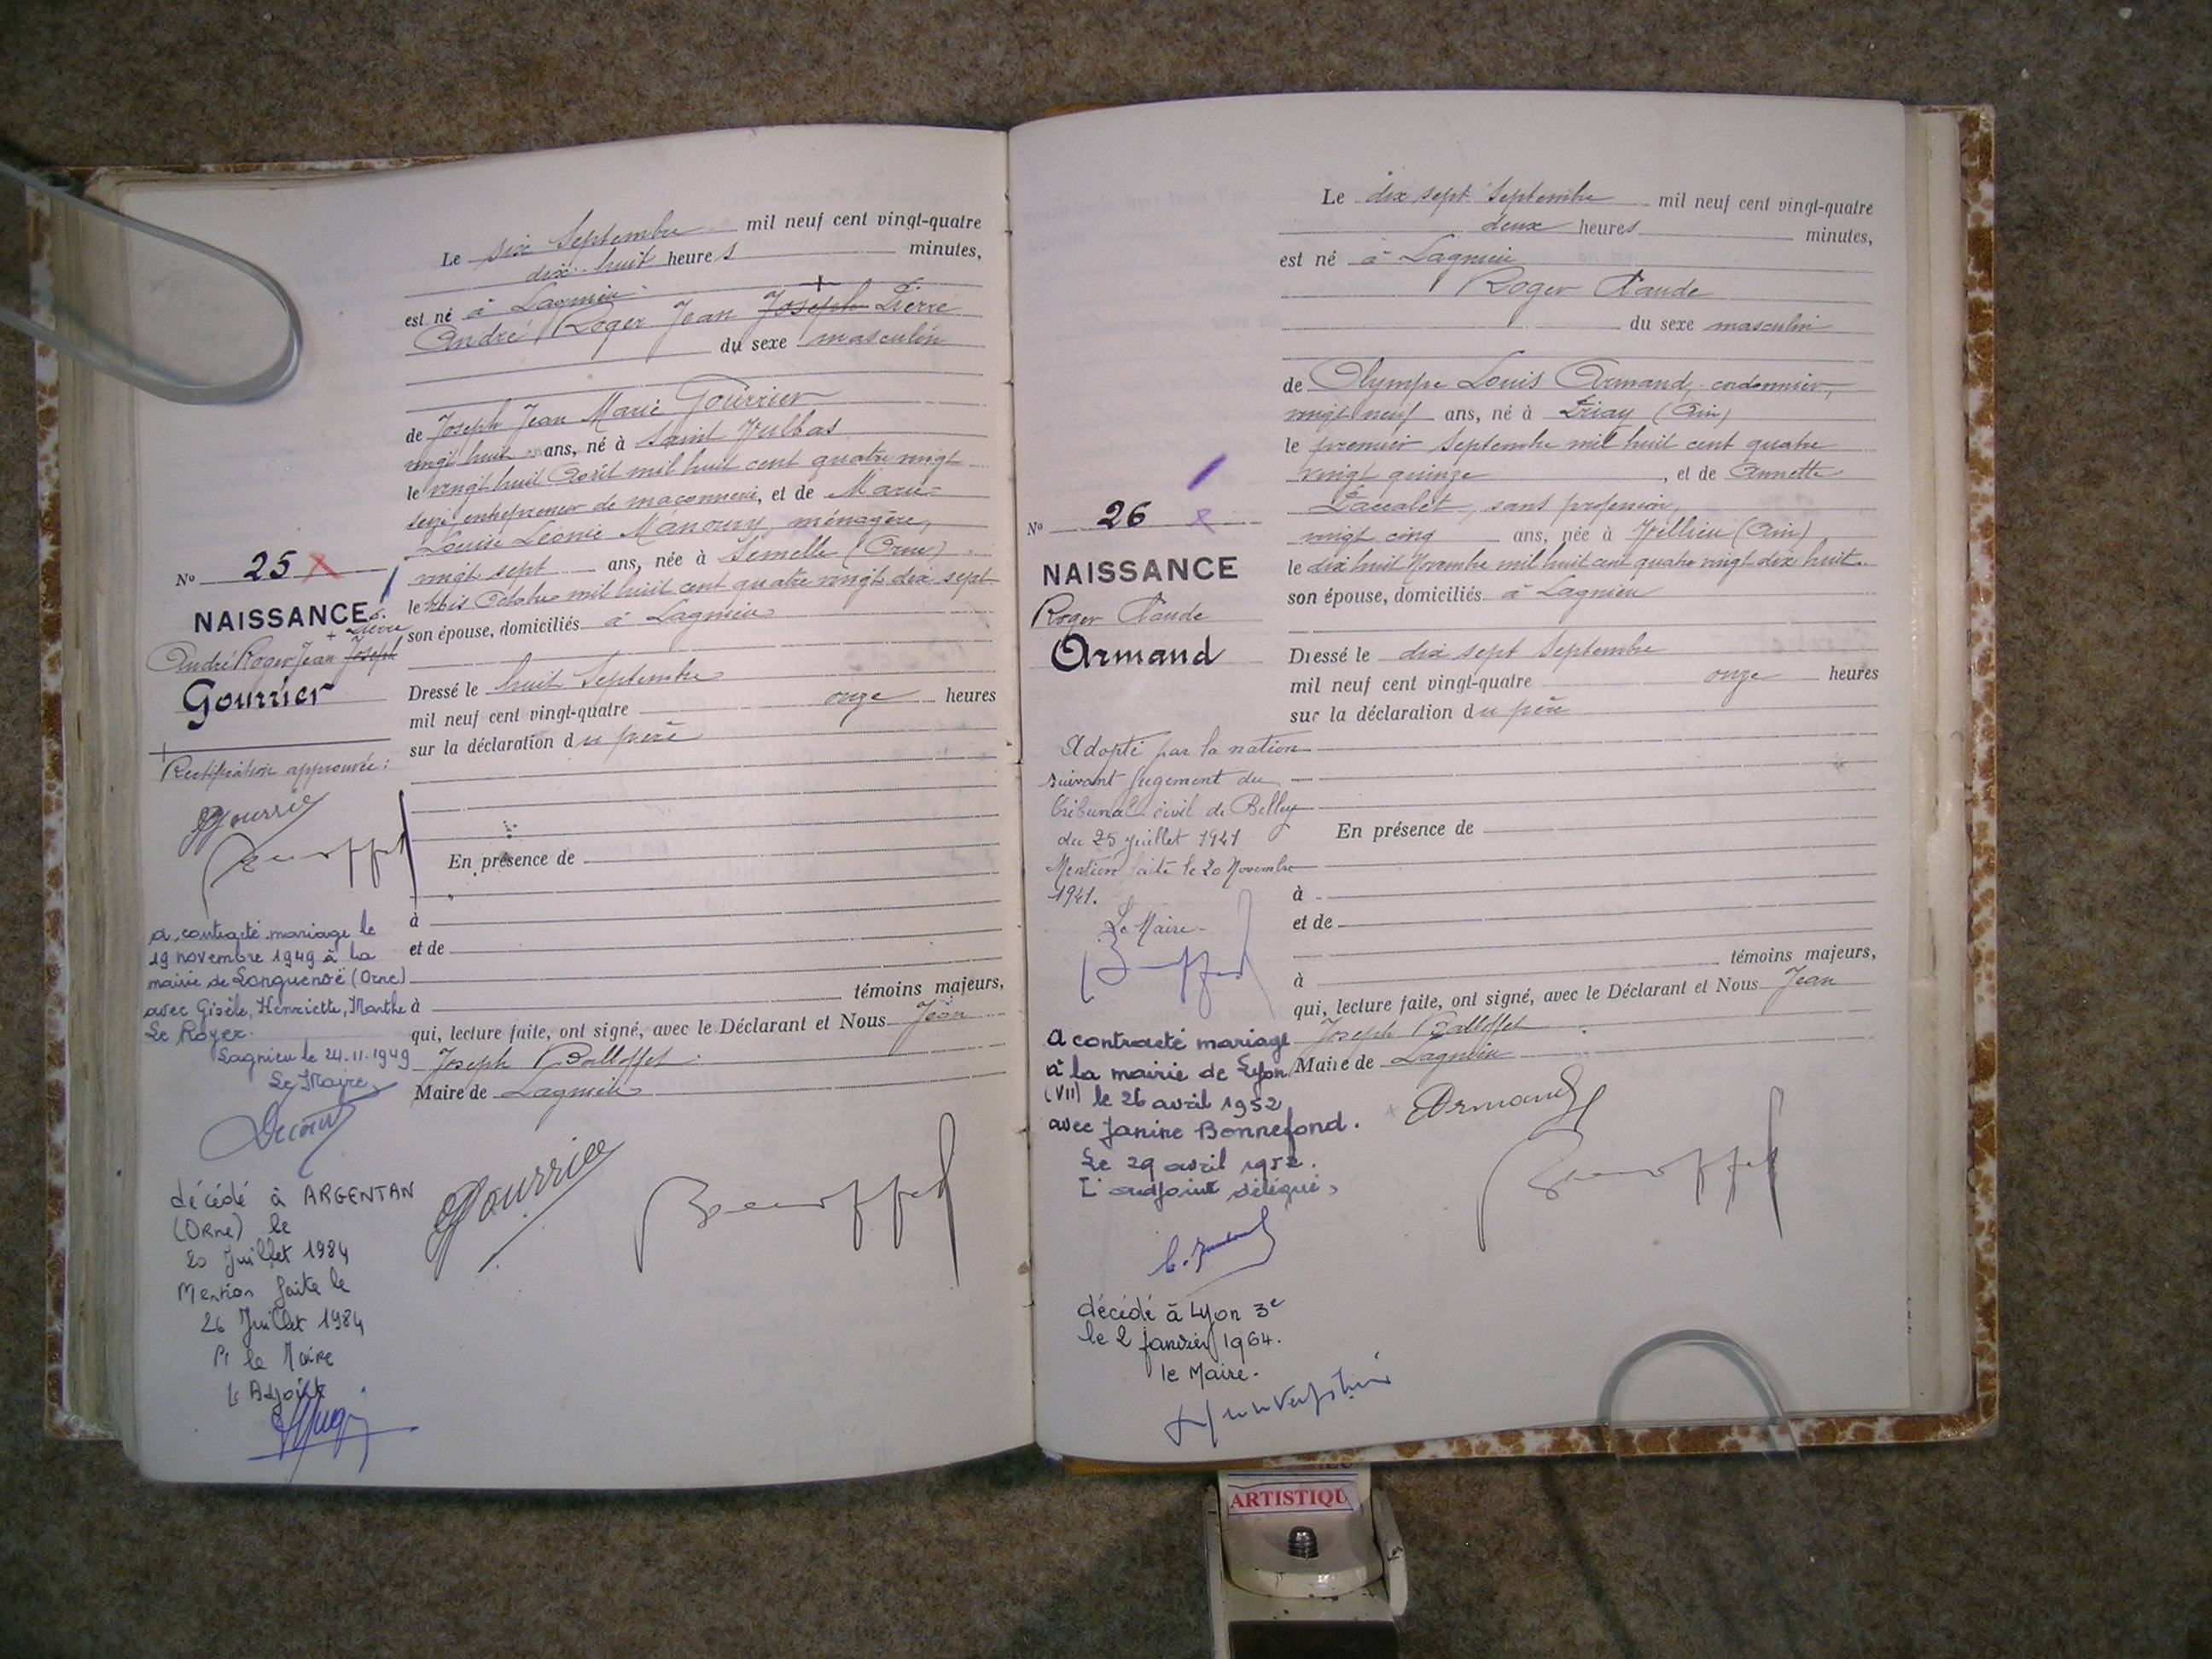 Le six Septembre mil neuf cent vingt-quatre
dix-huit heures minutes,
est né à Lagnieu
André Roger Jean Joseph Pierre
du sexe masculin
de Joseph Jean Marie Gourrier
vingt huit ans, né à Saint Vulbas
le vingt huit Avril mil huit cent quatre vingt
seize, entrepreneur de maçonnerie, et de Marie-
Louise Léonie Manoury, ménagère,
vingt sept ans, née à Semelle (Orne)
le trois Octobre mil huit cent quatre vingt dix sept
son épouse, domiciliés à Lagnieu
Dressé le huit Septembre
mil neuf cent vingt-quatre onze heures
sur la déclaration du père
En présence de
à
et de
témoins majeurs,
à
qui, lecture faite, ont signé, avec le Déclarant et Nous Jean
Joseph Balloffet
Maire de Lagnieu
Gourrier
Balloffet
No 25
NAISSANCE
Pierre
André Roger Jean Joseph
Gourrier
Rectification approuvée:
Gourrier
Balloffet
a contracté mariage le
19 novembre 1949 à la
mairie de Longuenoë (Orne)
avec Gisèle, Henriette, Marthe
Le Royer.
Lagnieu le 24.11.1949
Le Maire
décédé à ARGENTAN
(Orne) le
20 Juillet 1984
Mention faite le
26 Juillet 1984
Pr le Maire
L'Adjoint
Le dix sept Septembre mil neuf cent vingt-quatre
deux heures minutes,
est né à Lagnieu
Roger Claude
du sexe masculin
de Olympe Louis Armand, cordonnier,
vingt neuf ans, né à Priay (Ain)
le premier Septembre mil huit cent quatre
vingt quinze, et de Annette
sans profession,
vingt cinq ans, née à Villieu (Ain)
le dix huit Novembre mil huit cent quatre vingt dix huit
son épouse, domiciliés à Lagnieu
Dressé le dix sept Septembre
mil neuf cent vingt-quatre onze heures
sur la déclaration du père
En présence de
à
et de
témoins majeurs,
à
qui, lecture faite, ont signé, avec le Déclarant et Nous Jean
Joseph Balloffet
Maire de Lagnieu
Armand
Balloffet
No 26
NAISSANCE
Roger Claude
Armand
Adopté par la nation
suivant jugement du
tribunal civil de Belley
du 25 juillet 1941
Mention faite le 20 Novembre
1941.
Le Maire
A contracté mariage
à la mairie de Lyon
(VII) le 26 avril 1952
avec Janine Bonnefond.
Le 29 avril 1952.
L'adjoint délégué,
décédé à Lyon 3e
le 2 janvier 1964.
le Maire.
ARTISTIQU